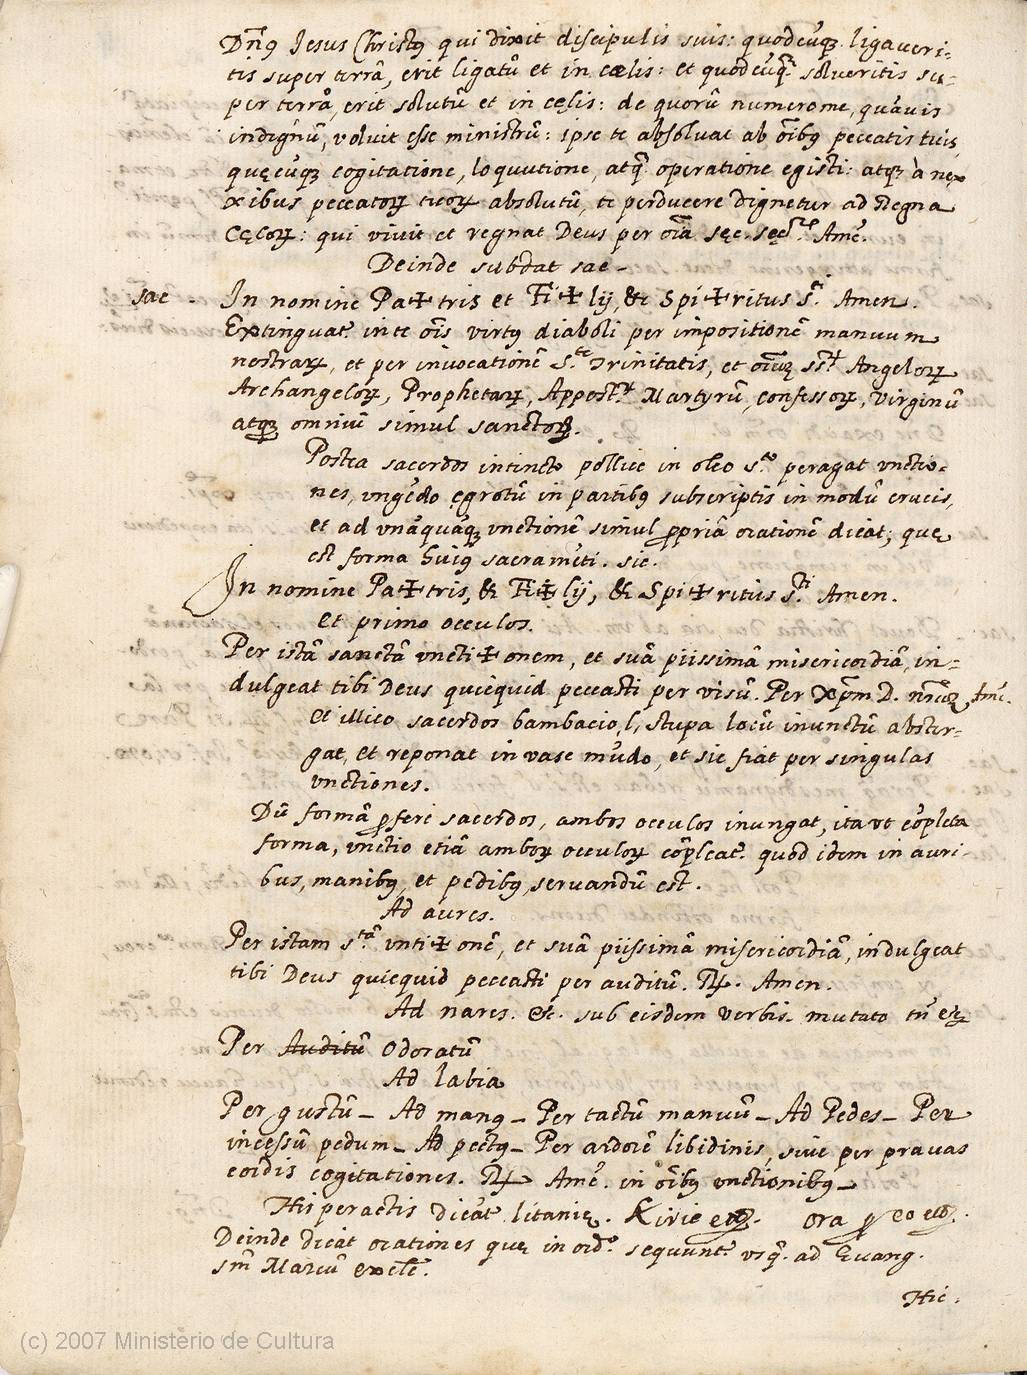 Dñ9 Jesus Christ9 qui dixit discipulis suis: quodcũqȝ ligaueri-
tis super terrã, erit ligatũ et in cælis: et quodcũqȝ solueritis su-
per terrã, erit solutũ et in cęlis: de quorũ numero me, quãuis
indignũ, voluit esse ministrũ: ipse te absoluat ab oĩbus peccatis tuis,
quęcũqȝ cogitatione, loquutione, atqȝ operatione egisti: atqȝ à nę-
xibus peccatoꝝ tuoꝝ absolutũ, te perducere dignetur ad Regna
Cęloꝝ: qui viuit et regnat Deus per oĩa sęc. sęc. Amẽ.
Deinde subdat sac-
sac - In nomine Pa✠tris et Fi✠lij, & Spi✠ritus S.ti Amen.
Extinguat.r in te oĩs virt9 diaboli per impositionẽ manuum
nostraꝝ, et per inuocationẽ S.te Trinitatis, et oĩuȝ ss.ꝝ Angeloꝝ
Archangeloꝝ, Prophetaꝝ, Appost.ꝝ Martyrũ, confessoꝝ, virginũ
atqȝ omniũ simul sanctoꝝ.
Postea sacerdos intincto pollice in oleo S.to peragat vnctio-
nes, vngẽdo egrotũ in partib9 subscriptis in modũ crucis,
et ad vnãquãqȝ vnctionẽ simul ꝓpriã orationẽ dicat; quę
est forma hui9 sacramẽti. sic.
In nomine Pa✠tris, & Fi✠lij, & Spi✠ritus S.ti Amen.
Et primo occulos.
Per istã sanctã vncti✠onem, et suã piissimã misericordiã, in-
dulgeat tibi Deus quicquid peccasti per visũ. Per Xp̃m D. nr̃uȝ Amẽ.
Et illico sacerdos bambacio, l, stupa locũ inunctũ abster-
gat, et reponat in vase mũdo, et sic fiat per singulas
vnctiones.
Dũ formã ꝓfert sacerdos, ambos occulos inungat, ita vt cõpleta
forma, vnctio etiã amboꝝ occuloꝝ cõpleat.r quod idem in auri-
bus, manib9, et pedib9, seruandũ est.
Ad aures.
Per istam s.tã vnti✠onẽ, et suã piissimã misericordiã, indulgeat
tibi Deus quicquid peccasti per auditũ. ℟. Amen.
Ad nares. &c. sub eisdem verbis. mutato tñ
Per Auditũ Odoratũ
Ad labia
Per gustũ_ Ad man9_ Per tactũ manuũ_ Ad Pedes_ Per
incessũ pedum_ Ad pect9_ Per ardorẽ libidinis, siue per prauas
cordis cogitationes. ℟ Amẽ. in oĩb9 vnctionib9_
His peractis dicãt.r litanię. Kirie etȝ. Ora ꝓ eo etȝ.
Deinde dicãt orationes quę in ord.e sequunt.r vsqȝ ad Euang.
sm̃ Marcũ
Hic.
(c) 2007 Ministerio de Cultura